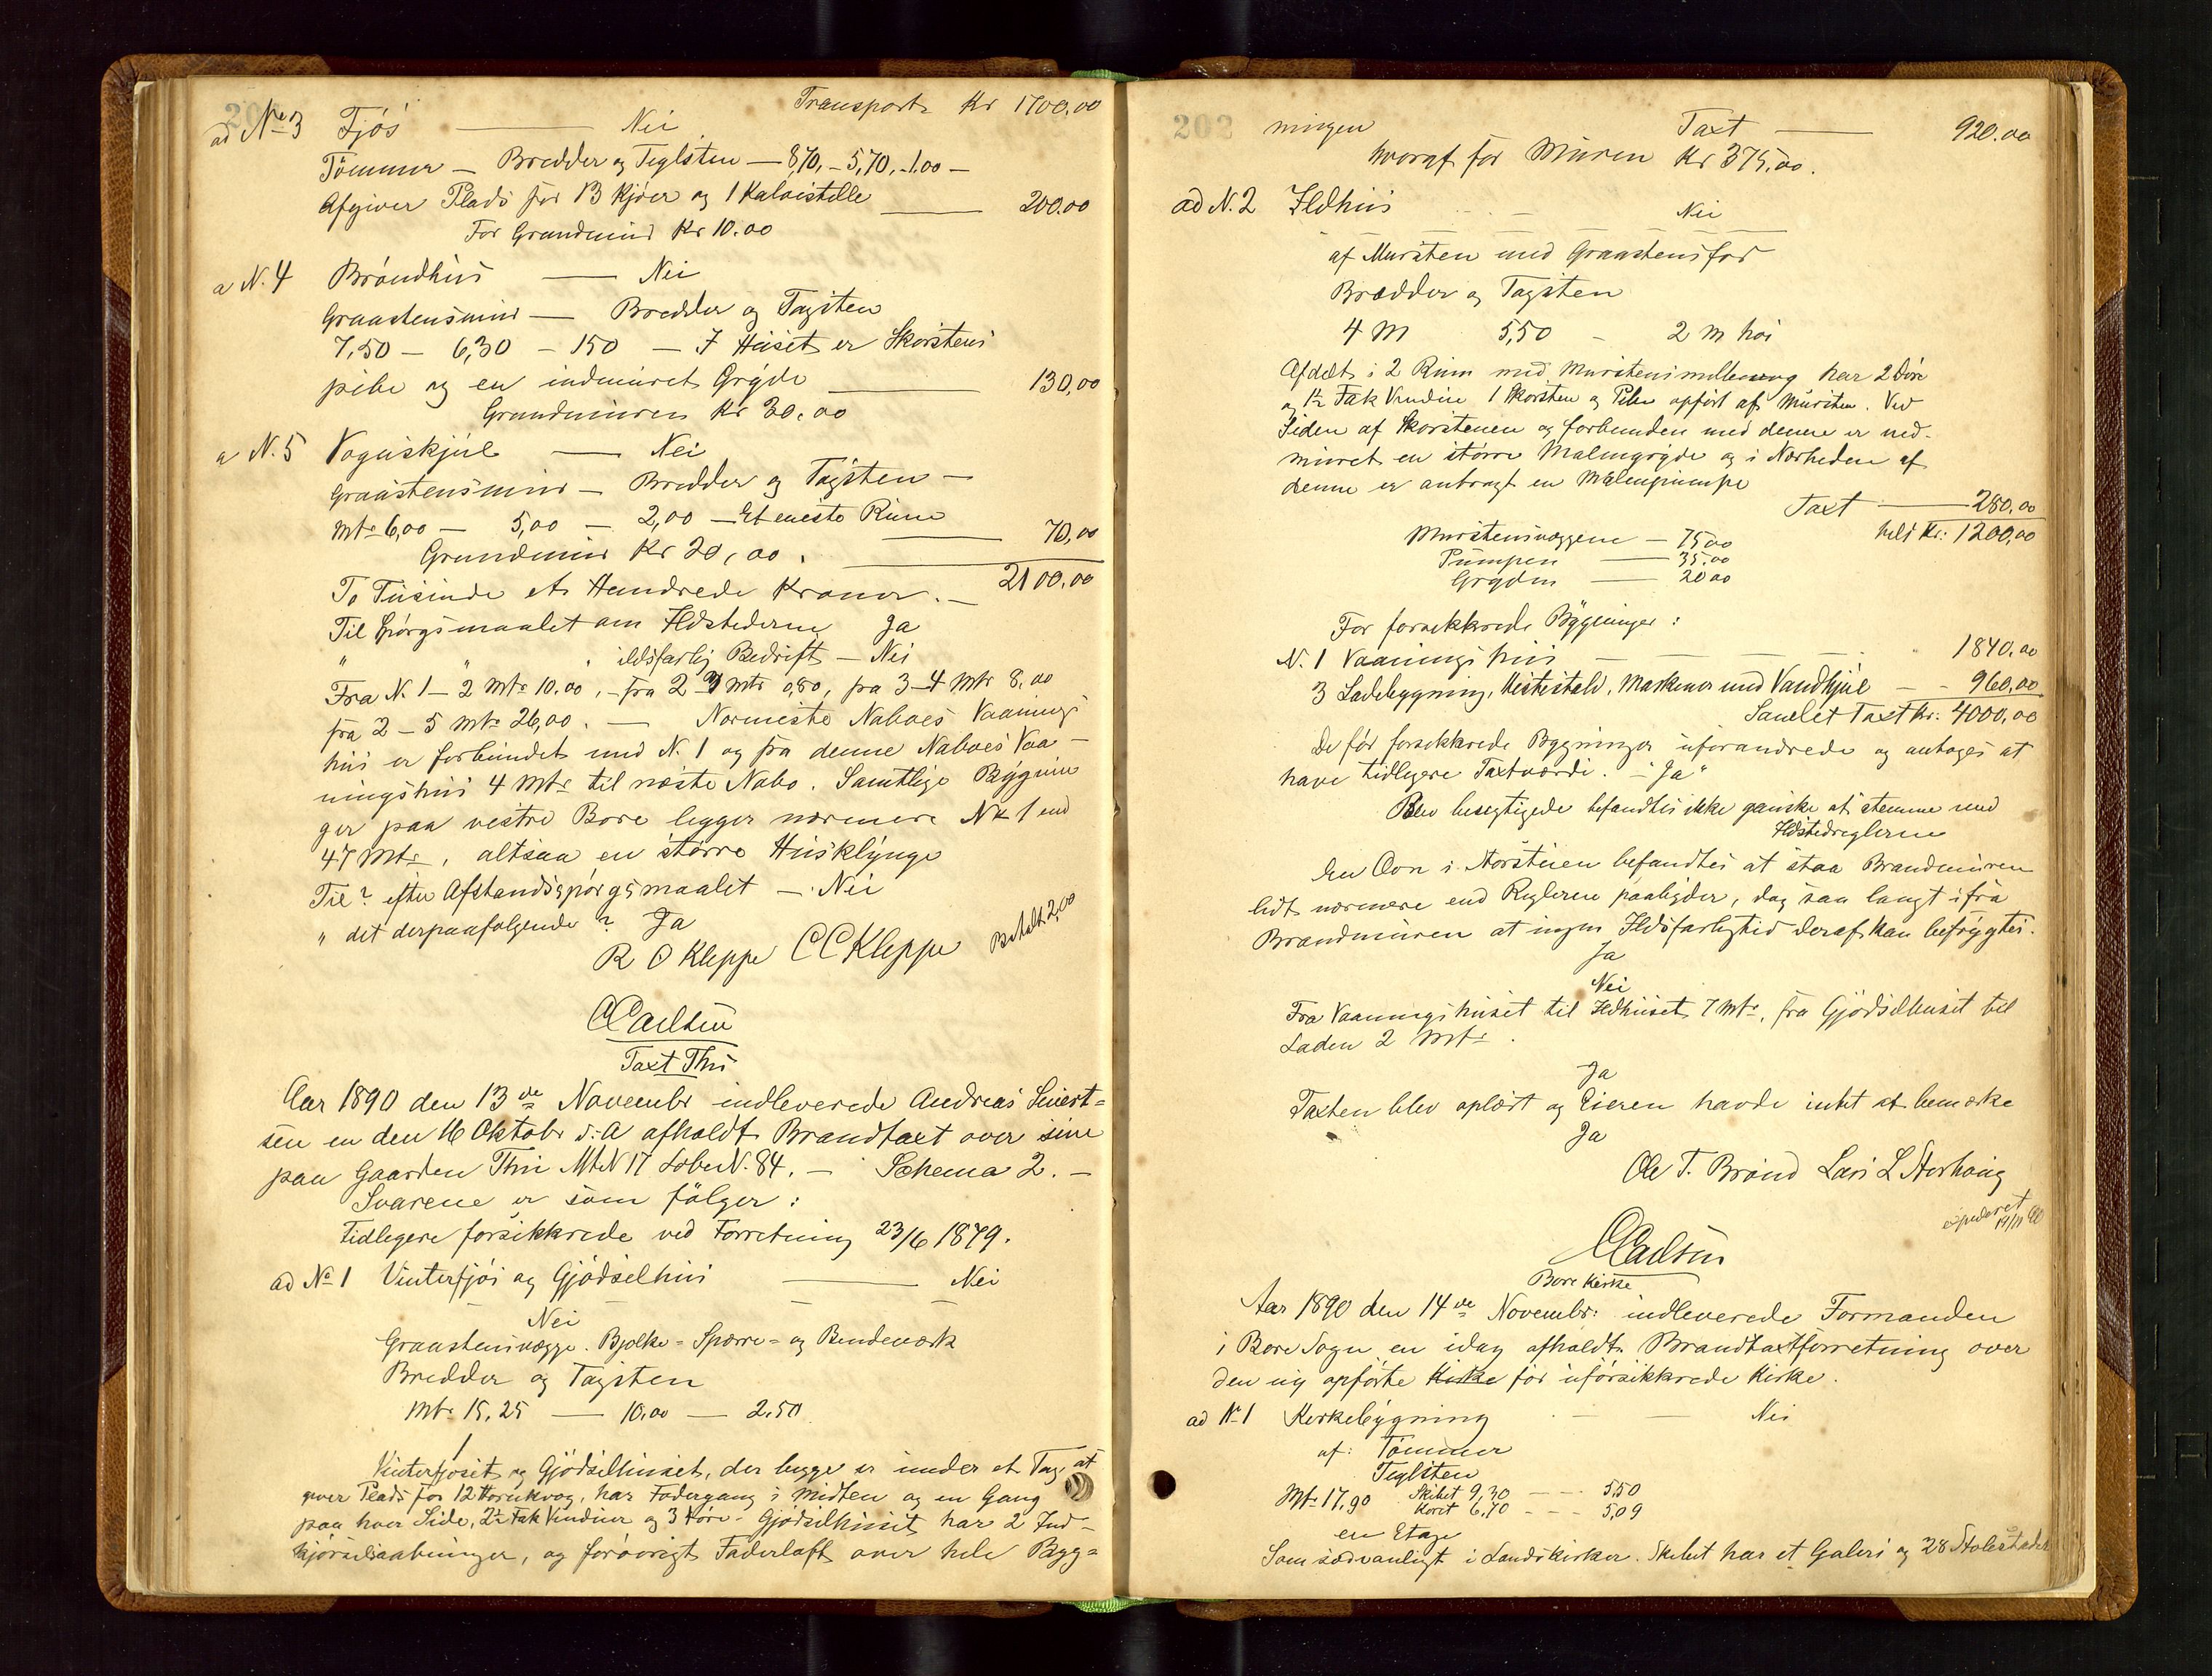 Transport Kr 1700,00
ad No 3 Fjós — Nei
Tömmer — Bredder og Teglsten — 8,70, - 5,70, - 1.00 —
Afgiver Plads for 13 Kjöer og 1 Kalvistelle — 200.00
For Grundmur Kr 10.00
a N. 4 Bröndhus — Nei
Graastensmur — Bredder og Tagsten
7,50 — 6,30 — 150 — I Huset er Skorstens
pibe og en indmuret Gryde — 130,00
Grundmuren Kr 30.00
a N. 5 Vognskjul — Nei
Graastensmur — Bredder og Tagsten —
Mtr 6,00 — 5,00 — 2,00 — Et eneste Rum
70,00
Grundmur Kr 20,00.
To Tusinde et Hundrede Kroner. — 2100.00
Til Spörgsmaalet om Ildstederne Ja
" " " ildsfarlig Bedrift — Nei
Fra N. 1 — 2 Mtr 10.00, - fra 2 3 Mtr 0,80, fra 3 — 4 Mtr 8.00
fra 2 — 5 Mtr 26,00. — Nærmeste Naboes Vaanings
hus er forbundet med N. 1 og fra denne Naboes Vaa-
ningshus 4 Mtr til næste Nabo. Samtlige Bygnin
ger paa vestre Bore ligger nærmere No 1 end
47 Mtr, altsaa en större Husklynge
Til? efter Afstandsspörgsmaalet — Nei
" det derpaafölgende? Ja
R O Kleppe CC Kleppe Betalt 2,00
CCarlsen
Taxt Thu
Aar 1890 den 13de Novembr indleverede Andreas Sivert-
sen en den 16 Oktobr d:A afholdt Brandtaxt over sine
paa Gaarden Thu MtN 17 LöbeN. 84. — Schema 2. —
Svarene er som fölger:
Tidligere forsikkrede ved Forretning 23/6 1879.
ad No 1 Vinterfjös og Gjödselhus — Nei
Nei
Graastensvægge. Bjelke- Sperre- og Bindeværk
Bredder og Tagsten
Mtr 15.25 — 10.00 — 2.50
Vinterfjoset og Gjödselhuset, der begge er under et Tag, af
giver Plads for 12 Hornkvæg, har Fodergang i Midten og en Gang
paa hver Side, 2½ Fak Vinduer og 3 Döre. Gjödselhuset har 2 Ind-
kjörselsaabninger, og forövrigt Foderloft over hele Byg-
202
ningen Taxt — 920.00
hvoraf for Muren Kr 375,00.
ad N. 2 Ildhus — Nei
af Mursten med Graastensfod
Brædder og Tagsten
4 M 5,50 - 2 m höi
Afdelt i 2 Rum med Murstensmellemvæg har 2 Döre
og 1½ Fak Vinduer 1 Skorsten og Pibe opfört af Mursten. Ved
Siden af Skorstenen og forbunden med denne er ned-
muret en större Malmgryde og i Nærheden af
denne er anbragt en Malmpumpe
Taxt — 280.00
Murstensvæggene — 75.00 hels Kr: 1200,00
Pumpen — 35.00
Gryden — 20 00
For forsikkrede Bygninger:
N. 1 Vaaningshus — — — 1840.00
3 Ladebygning, Hestestald, Maskiner med Vandhjul — - 960,00
Samlet Taxt Kr: 4000,00
De för forsikkrede Bygninger uforandrede og antages at
have tidligere Taxtværdi. — "Ja"
Blev besigtigede befandtes ikke ganske at stemme med
Ildstedreglerne
En Ovn i Storstuen befandtes at staa Brandmuren
lidt nærmere end Reglerne paabyder, dog saa langt ifra
Brandmuren at ingen Ildsfarlighed deraf kan befrygtes.
Ja
Nei
Fra Vaaningshuset til Ildhuset 7 Mtr, fra Gjödselhuset til
Laden 2 Mtr.
Ja
Taxten blev oplæst og Eieren havde intet at bemærke
Ja
Ole T. Brönd Lars L Storhoug
expederet 19/11 90
CCarlsen
Bore Kirke
Aar 1890 den 14de Novembr: indleverede Formanden
i Bore Sogn en idag afholdt Brandtaxtforretning over
den ny opförte Kirke för uforsikkrede Kirke.
ad No 1 Kirkebygning — Nei
af: Tömmer
Teglsten
Mtr 17,90 Skibet 9,30 — — 5.50
Koret 6.70 - - - 5,09
en Etage
Som sædvanligt i Landskirker. Skibet har et Galeri og 28 Stolestader